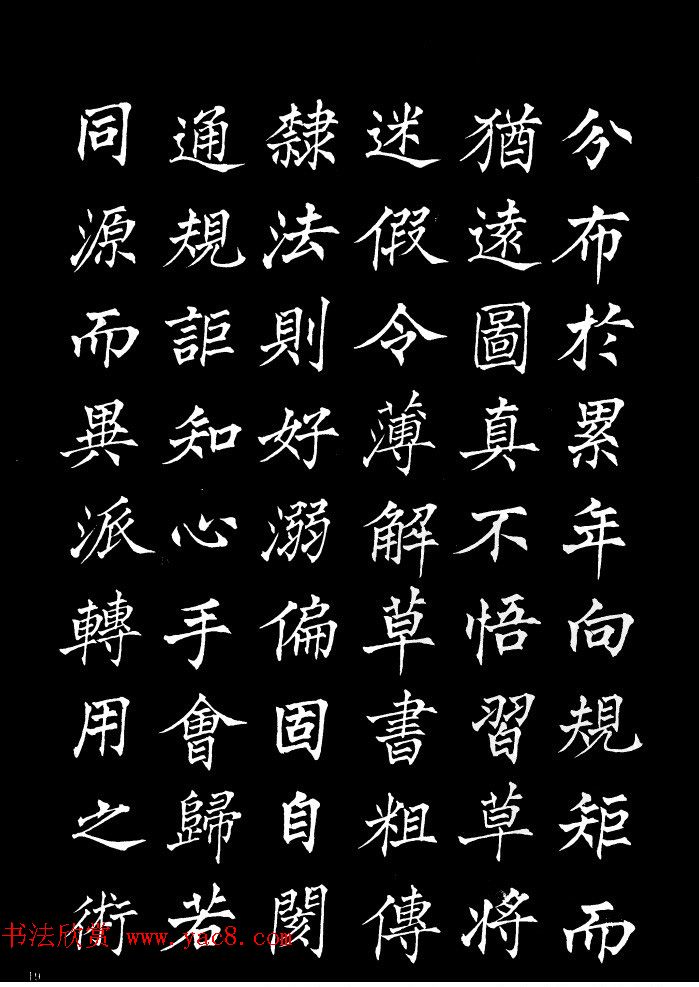 分布於累年向規矩而
猶遠圖真不悟習草將
迷假令薄解草書粗傳
隸法則好溺偏固自閡
通規詎知心手會歸若
同源而異派轉用之術
书法欣赏 www.yac8.com
19